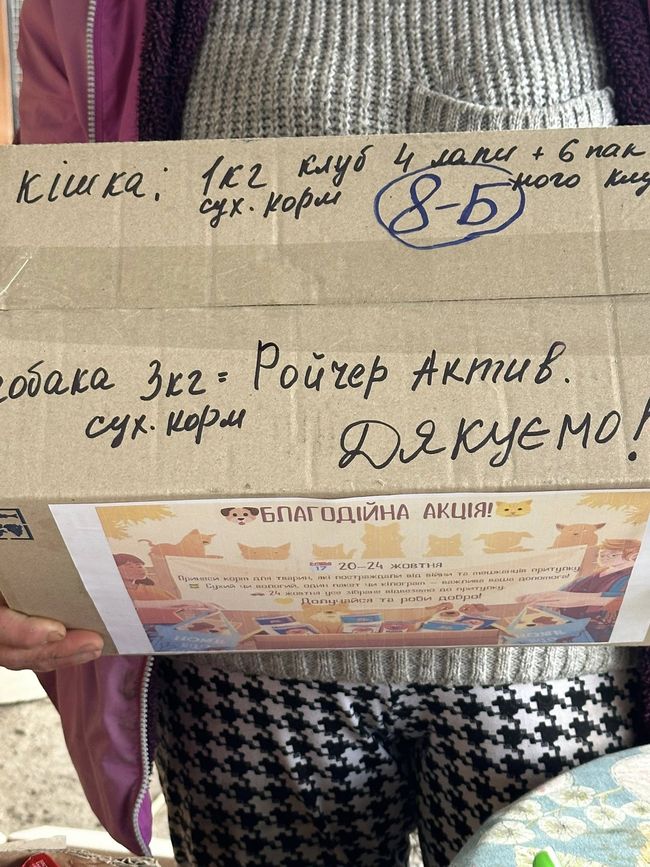 кішка: 1кг клуб 4 лапи + 6 пак
сух. корм 8-Б ного клу
собака 3кг = Ройчер Актив.
сух. корм
Дякуємо!
БЛАГОДІЙНА АКЦІЯ!
17 20-24 жовтня
Принеси корм для тварин, які постраждали від війни та мешканців притулку
Сухий чи вологий, один пакет чи кілограм — важлива ваша допомога!
24 жовтня усе зібране відвеземо до притулку.
Долучайся та роби добро!